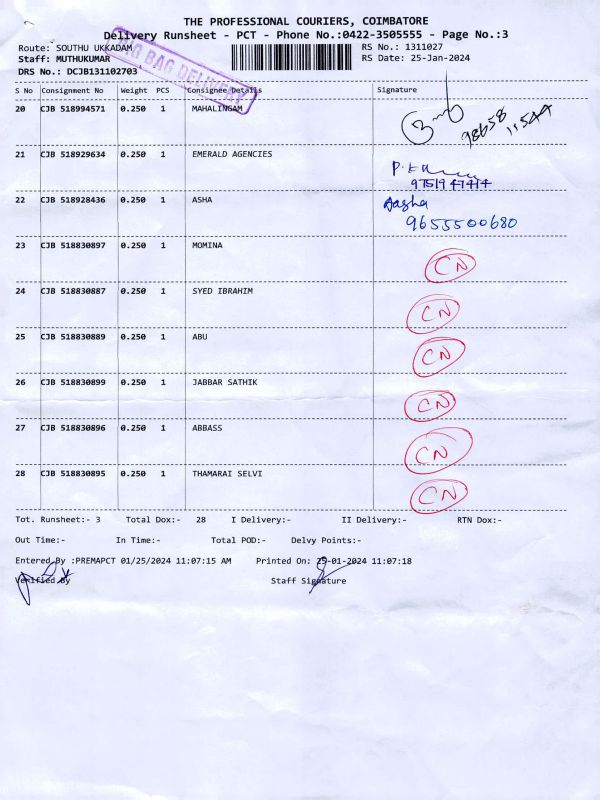 THE PROFESSIONAL COURIERS, COIMBATORE
Delivery Runsheet - PCT - Phone No.:0422-3505555 - Page No.:3
Route: SOUTHU UKKADAM
RS No.: 1311027
Staff: MUTHUKUMAR
RS Date: 25-Jan-2024
DRS No.: DCJB131102703
BAG DELIVERY
S No Consignment No Weight PCS Consignee Details Signature
20 CJB 518994571 0.250 1 MAHALINGAM
98658 11544
21 CJB 518929634 0.250 1 EMERALD AGENCIES
22 CJB 518928436 0.250 1 ASHA Aasha
9655500680
23 CJB 518830897 0.250 1 MOMINA CN
24 CJB 518830887 0.250 1 SYED IBRAHIM CN
25 CJB 518830889 0.250 1 ABU CN
26 CJB 518830899 0.250 1 JABBAR SATHIK CN
27 CJB 518830896 0.250 1 ABBASS CN
28 CJB 518830895 0.250 1 THAMARAI SELVI CN
Tot. Runsheet:- 3 Total Dox:- 28 I Delivery:- II Delivery:- RTN Dox:-
Out Time:- In Time:- Total POD:- Delvy Points:-
Entered By :PREMAPCT 01/25/2024 11:07:15 AM Printed On: 25-01-2024 11:07:18
Verified By Staff Signature